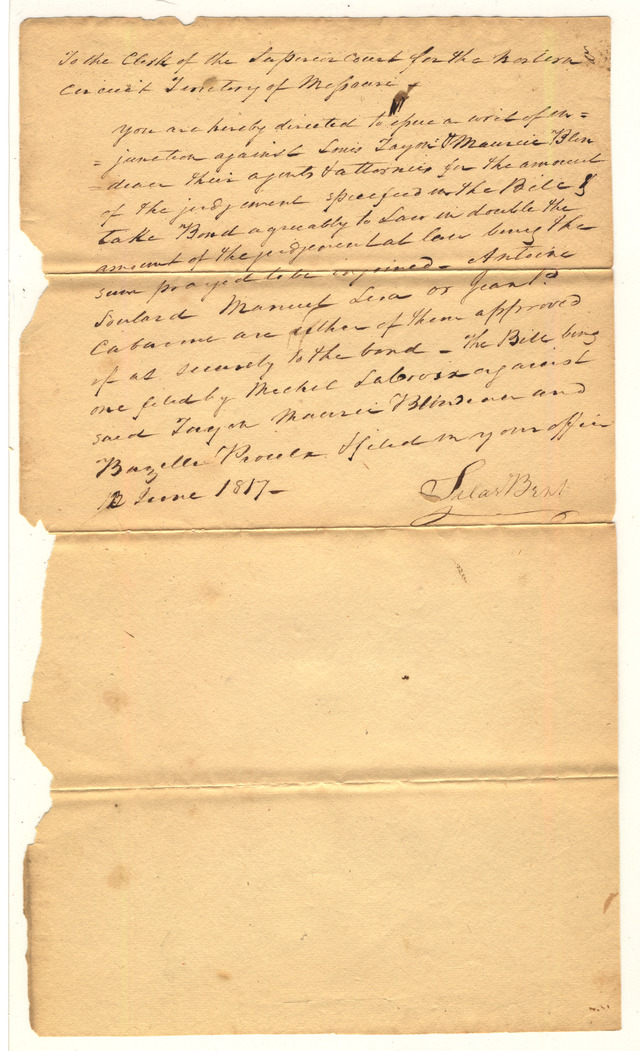 To the Clerk of the Superior court for the northern
circuit Territory of Missouri
You are hereby directed to issue a writ of in=
=junction against Louis Tayon & Maurice Blin
=deaux their agents & attornies for the amount
of the judgement specified in the Bill &
take Bond agreeably to Law in double the
amount of the judgement at law being the
sum prayed to be injoined - Antoine
Soulard Manuel Lisa or Jean P.
Cabanne are either of them approved
of as security to the bond - The Bill being
one filed by Michel Lacroix against
said Tayon Maurice Blindeaux and
Bazelle Proulx & filed in your office
12 June 1817 -
Silas Bent